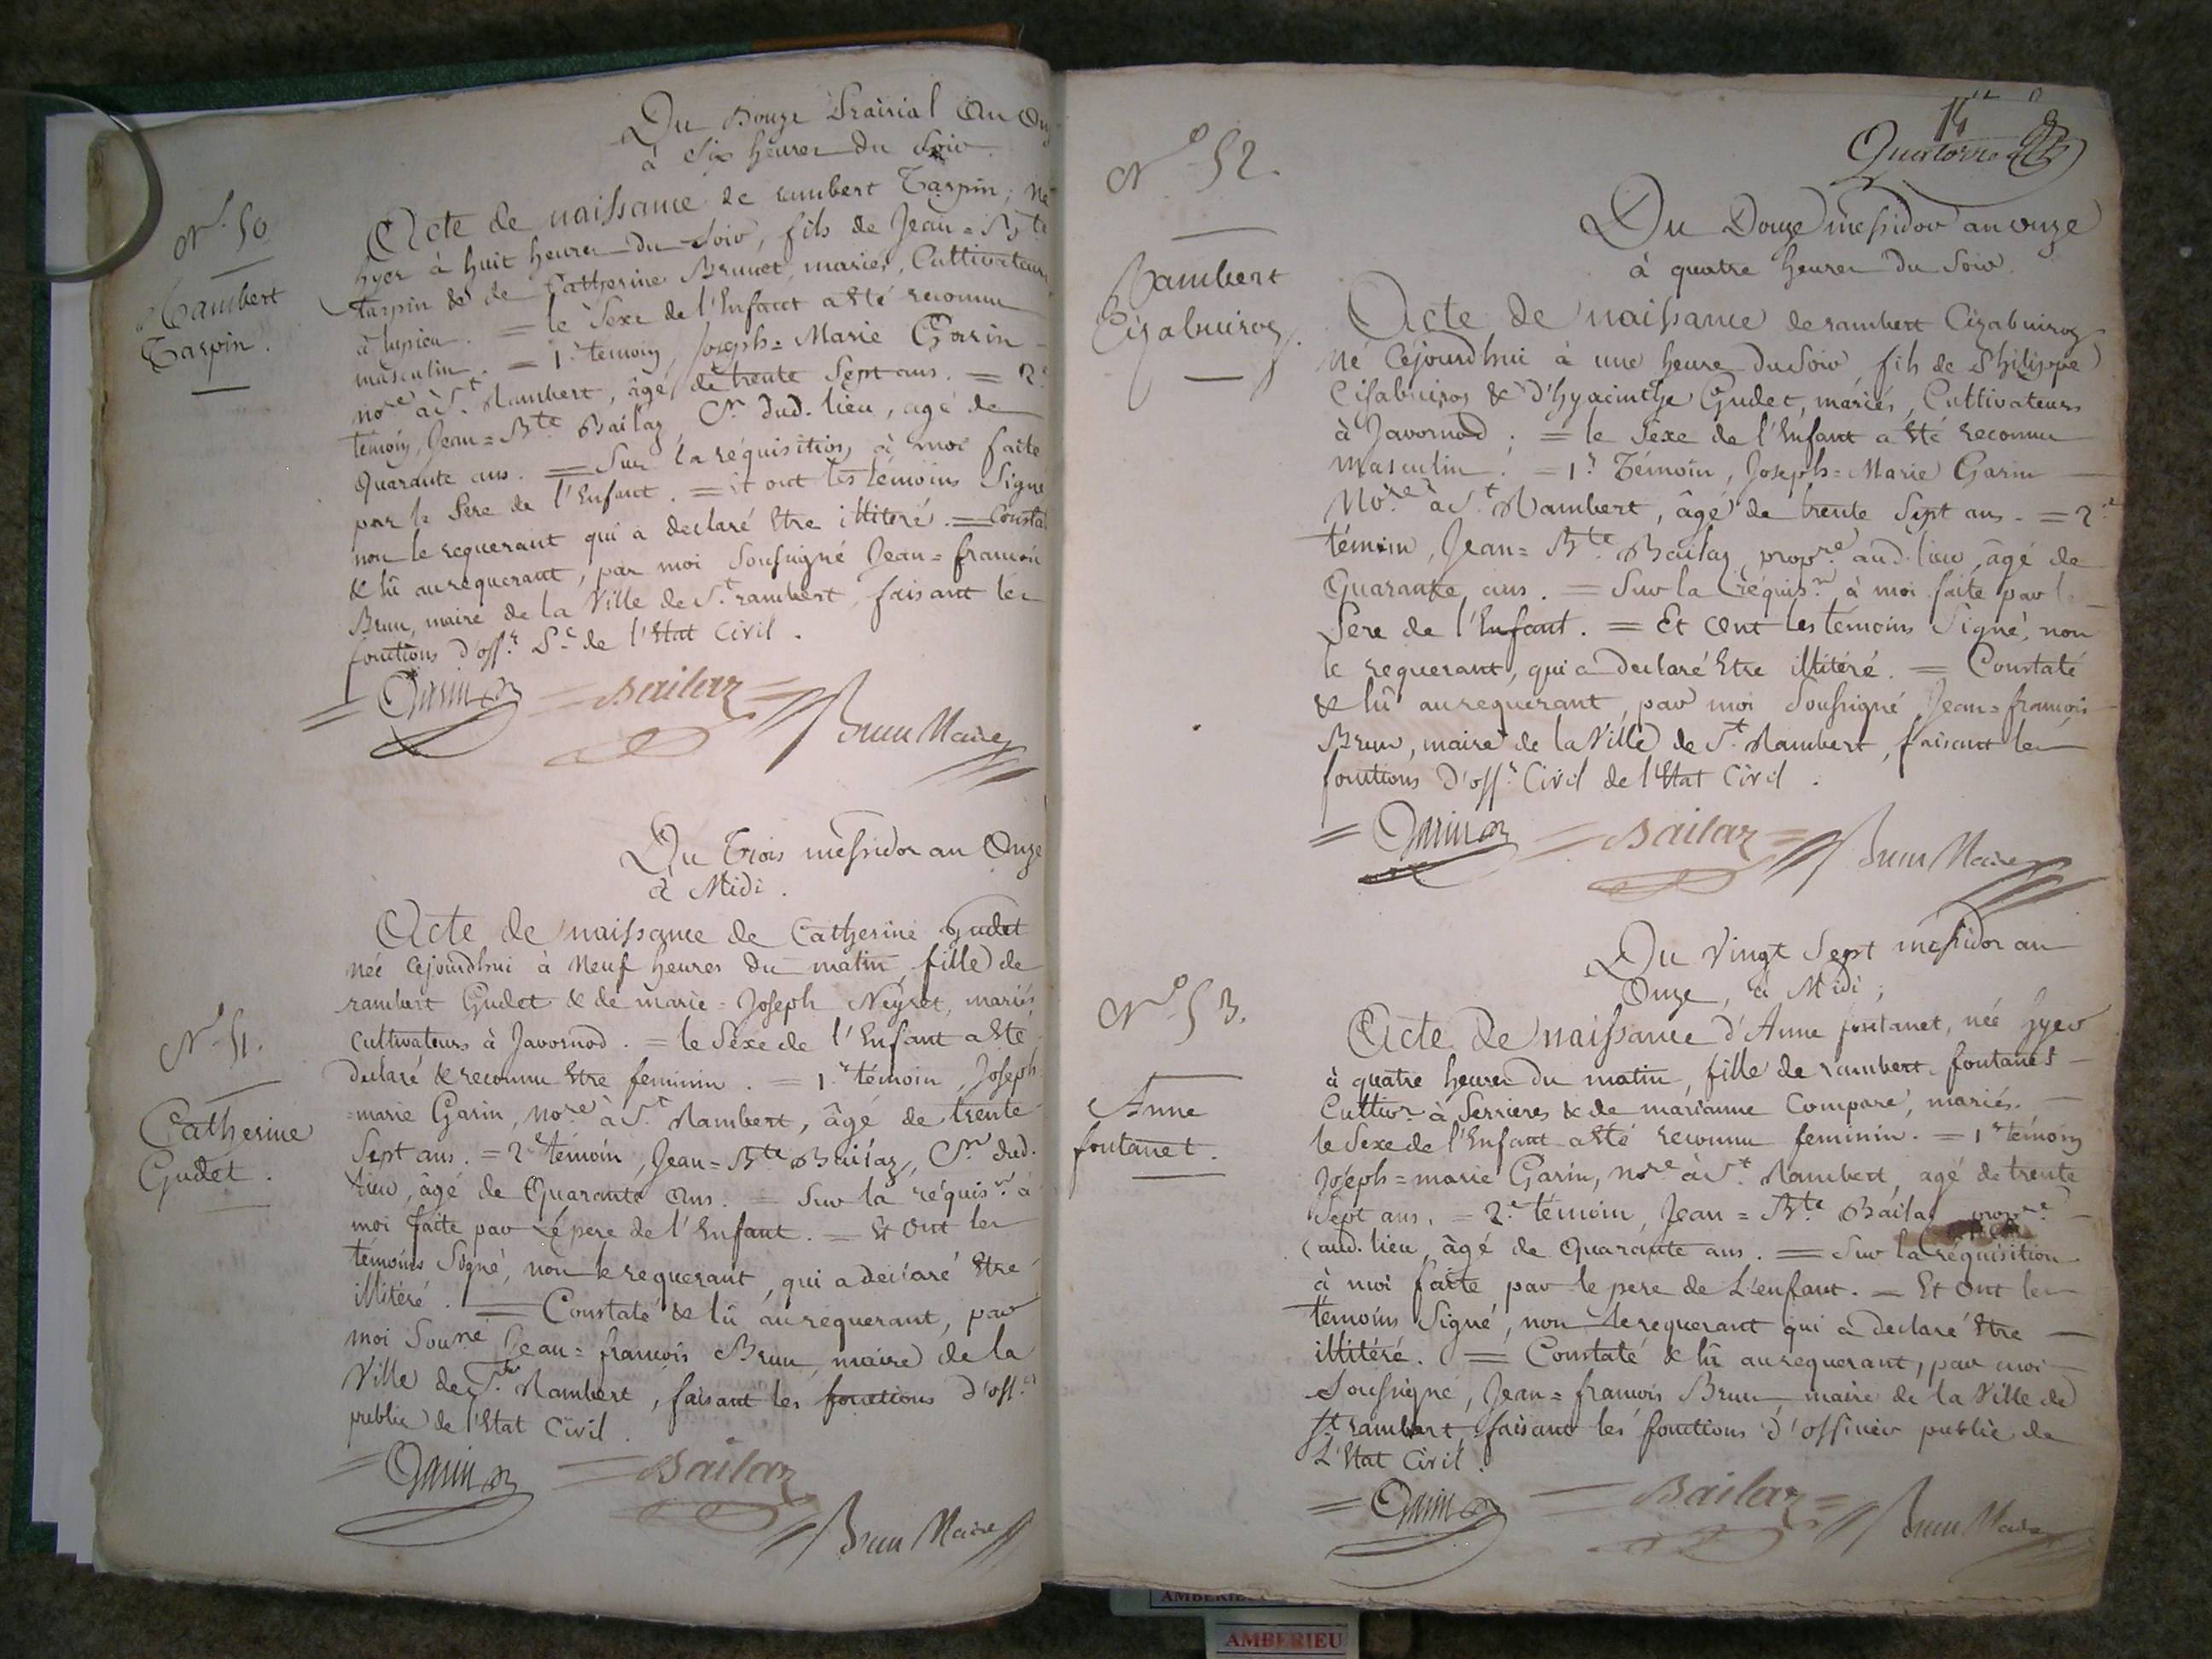 Du Douze Prairial an
à Six heures du Soir.
N.° 50
Rambert
Tarpin.
Acte de naissance de rambert Tarpin, né
hyer à huit heures du Soir, fils de Jean=B.te
tarpin & de Catherine Brunet, mariés, Cultivateurs
à lupieu. = le Sexe de l'Enfant a Eté reconnu
masculin. = 1.r témoin, Joseph=Marie Garin
no.re à S.t Rambert, âgé de trente Sept ans. = 2.e
témoin, Jean=B.te Bailaz, C.n dud. lieu, agé de
Quarante ans. = Sur la réquisition à moi faite
par le Père de l'Enfant. = Et ont les témoins Signé
non le requerant qui a declaré Etre illitéré. = Constaté
& lû au requerant, par moi Soussigné Jean=francois
Brun, maire de la Ville de S.t rambert, faisant les
fonctions d'off.r P.c de l'Etat Civil.
= Garin = Bailaz = Brun Maire
Du Trois messidor an Onze
à Midi.
N.° 51.
Catherine
Gudet.
Acte de naissance de Catherine Gudet
née cejourdhui à Neuf heures du matin, fille de
rambert Gudet & de marie=Joseph Neyret, mariés
Cultivateurs à Javornod. = le Sexe de l'Enfant a Eté
declaré & reconnu Etre feminin. = 1.r témoin, Joseph
=marie Garin, no.re à S.t Rambert, âgé de trente
Sept ans. = 2.e témoin, Jean=B.te Bailaz, C.n dud.
lieu, âgé de Quarante ans. = Sur la réquis.n à
moi faite par Le pere de l'Enfant. = Et Ont les
témoins Signé, non le requerant, qui a declaré Etre
illitéré. = Constaté & lû au requerant, par
moi Sou.né Jean=francois Brun, maire de la
Ville de S.t Rambert, faisant les fonctions d'off.er
public de l'Etat Civil.
= Garin = Bailaz
Brun Maire
14
Quatorze
N.° 52.
Rambert
Cizabuiroz.
Du Douze messidor an onze
à quatre heures du Soir.
Acte de naissance de rambert Cizabuiroz
né Cejourdhui à une heure du Soir, fils de Philippe
Cisabuiroz & d'hyacinthe Gudet, mariés, Cultivateurs
à Javornod. = le Sexe de l'Enfant a Eté reconnu
Masculin. = 1.r Témoin, Joseph=Marie Garin
No.re à S.t Rambert, âgé de trente Sept ans. = 2.e
témoin, Jean=B.te Bailaz, prop.re aud. lieu, âgé de
Quarante ans. = Sur la réquis.n à moi faite par le
Père de l'Enfant. = Et Ont les témoins Signé, non
le requerant, qui a declaré Etre illitéré. = Constaté
& lû au requerant, par moi Soussigné Jean=francois
Brun, maire de la Ville de S.t Rambert, faisant les
fonctions d'off.r Civil de l'Etat Civil.
= Garin = Bailaz = Brun Maire
Du Vingt Sept messidor an
Onze, à Midi;
N.° 53.
Anne
fontanet.
Acte de naissance d'Anne fontanet, née hyer
à quatre heures du matin, fille de rambert fontanet
Cultiv.r à Serrieres & de marianne Comparé, mariés.
le Sexe de l'Enfant a Eté reconnu feminin. = 1.r témoin
Joséph=marie Garin, no.re à S.t Rambert, agé de trente
Sept ans. = 2.e témoin, Jean=B.te Bailaz prop.re
aud. lieu, âgé de Quarante ans. = Sur la réquisition
à moi faite par le pere de L'enfant. = Et Ont les
témoins Signé, non le requerant qui a declaré Etre
illitéré. = Constaté & lû au requerant, par moi
Soussigné, Jean=francois Brun, maire de la Ville de
S.t rambert, faisant les fonctions d'officier public de
L'Etat Civil.
= Garin = Bailaz = Brun Maire
AMBERIEU